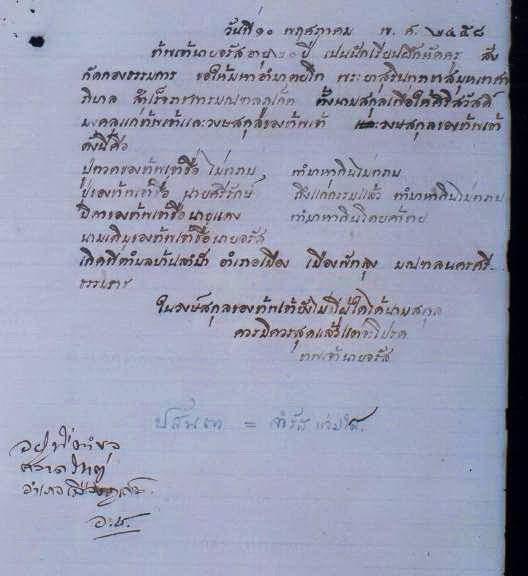 วันที่ ๑๐ พฤศภาคม พ.ศ. ๒๔๕๘
ข้าพเจ้านายจรัส อายุ ๒๐ ปี เปนนักเรียนฝึกหัดครู สัง
กัดกองธรรมการ ขอให้มหาอำมาตย์โท พระยาสุรินทราชา สมุหเทศา
ภิบาล สำเร็จราชการมณฑลภูเก็ต ตั้งนามสกุลเพื่อให้ศิริสวัสดิ์
มงคลแก่ข้าพเจ้าและวงษสกุลของข้าพเจ้า วงษสกุลของข้าพเจ้า
ดังนี้คือ
ปู่ทวดของข้าพเจ้าชื่อ ไม่ทราบ ทำมาหากินไม่ทราบ
ปู่ของข้าพเจ้าชื่อ นายศรีรักษ์ ถึงแก่กรรมแล้ว ทำมาหากินไม่ทราบ
บิดาของข้าพเจ้าชื่อนายแดง ทำมาหากินโดยค้าขาย
นามเดิมของข้าพเจ้าชื่อนายจรัส
เกิดที่ตำบลบ้านลำปำ อำเภอเมือง เมืองพัทลุง มณฑลนครศรี
ธรรมราช
ในวงษ์สกุลของข้าพเจ้ายังไม่มีผู้ใดได้นามสกุล
ควรมิควรสุดแล้วแต่จะโปรด
ข้าพเจ้านายจรัส
=
อยู่
ตลาดใหญ่
อำเภอเมือง